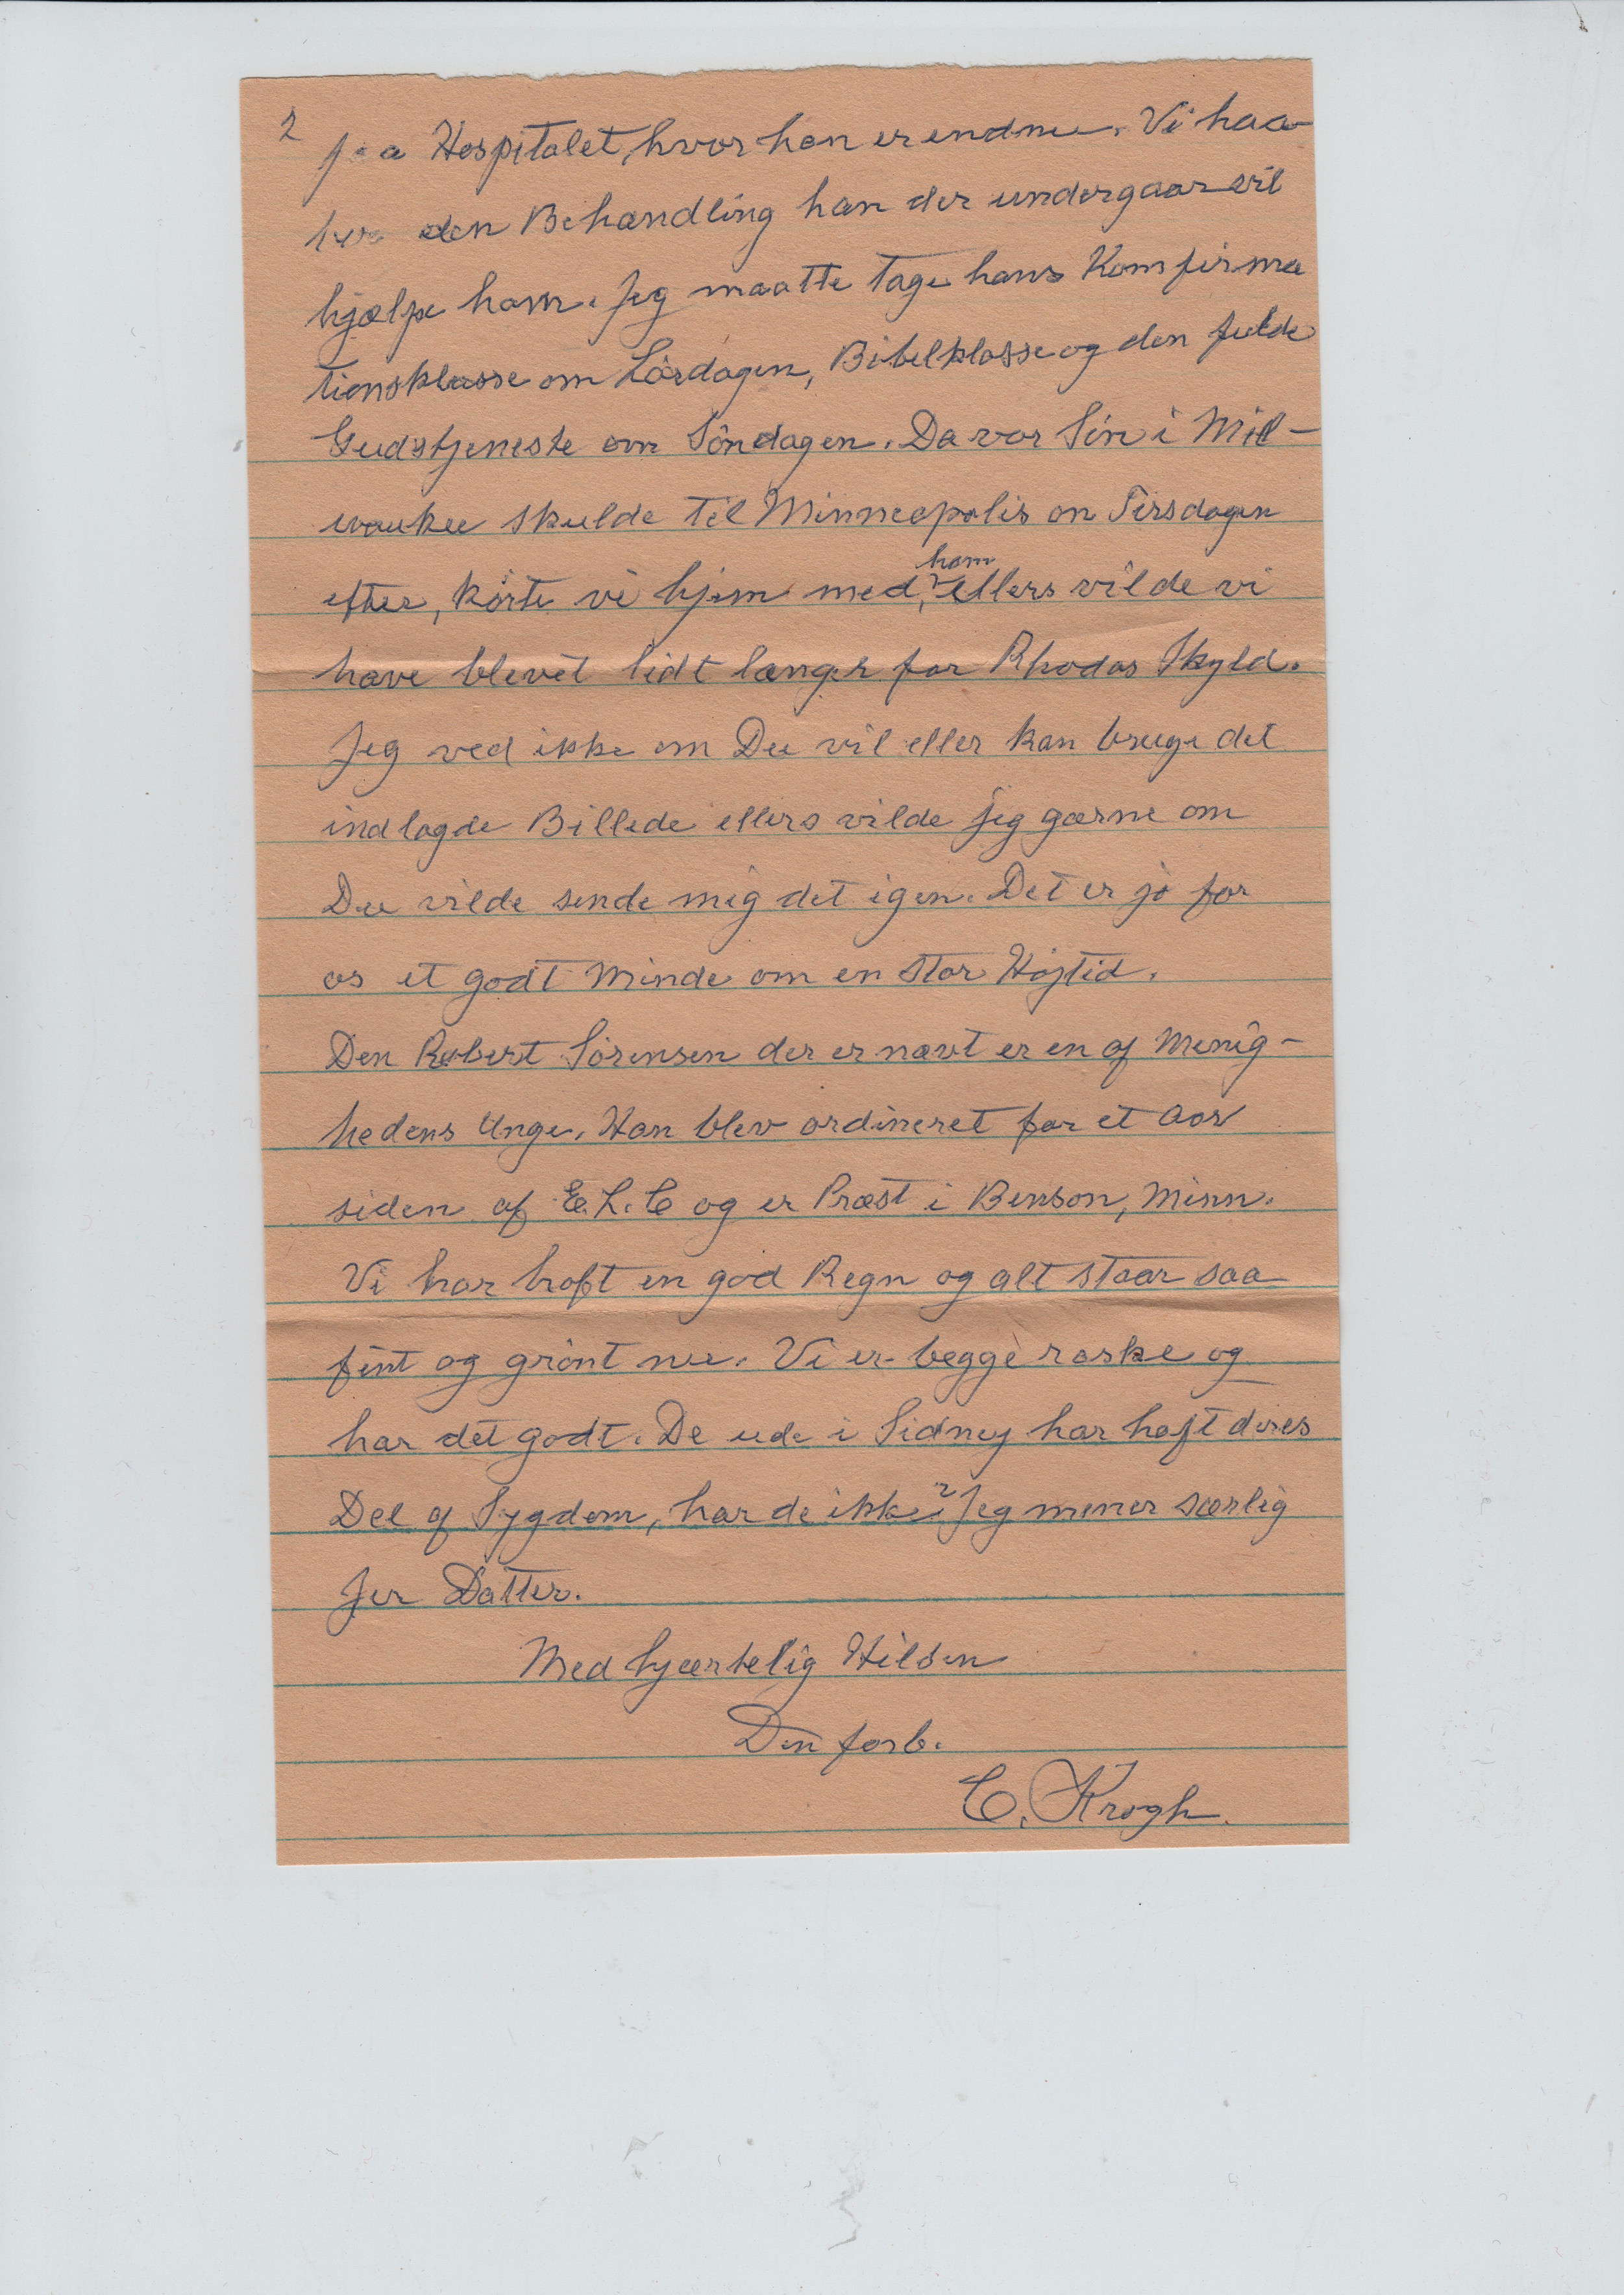 2
paa Hospitalet, hvor han er endnu. Vi haa-
ber den Behandling han der undergaar vil
hjælpe ham. Jeg maatte tage hans Komfirma
tionsklasse om Lördagen, Bibelklasse og den fulde
Gudstjeneste om Söndagen. Da vor Sön i Mil-
waukee skulde til Minneapolis on Tirsdagen
efter, körte vi hjem med ham, ellers vilde vi
have blevet lidt længer for Rhodas Skyld.
Jeg ved ikke om Du vil eller kan bruge det
indlagde Billede ellers vilde jeg gærne om
Du vilde sende mig det igen. Det er jo for
os et godt Minde om en stor Højtid.
Den Robert Sörensen der er nævt er en af Menig-
hedens Unge. Han blev ordineret for et Aar
siden af E.L.C og er Præst i Benson, Minn.
Vi har haft en god Regn og alt staar saa
fint og grönt nu. Vi er begge raske og
har det godt. De ude i Sidney har haft deres
Del af Sygdom, har de ikke? Jeg mener særlig
Jer Datter.
Med hjærtelig Hilsen
Din forb.
C. Krogh.